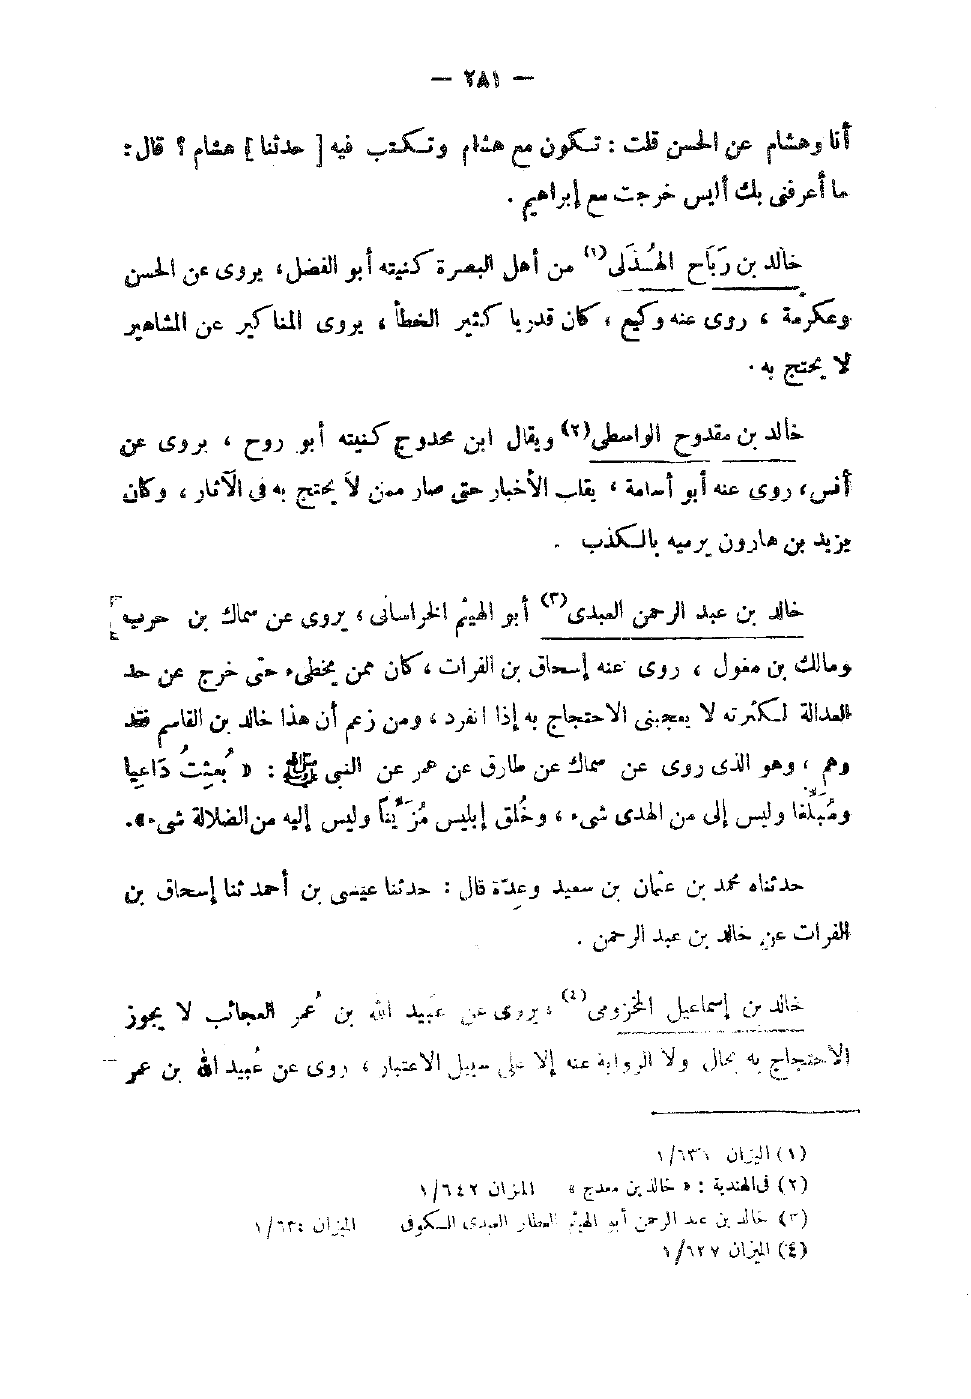 — ٢٨١ —
أنا وهشام عن الحسن قلت : تكون مع هشام وتكتب فيه [ حدثنا ] هشام ؟ قال :
ما أعرفنى بك أليس خرجت مع إبراهيم .
خالد بن رَبَاح الهُذَلى(١) من أهل البصرة كنيته أبو الفضل ، يروى عن الحسن
وعكرمة ، روى عنه وكيع ، كان قدريا كثير الخطأ ، يروى المناكير عن المشاهير
لا يحتج به .
خالد بن مقدوح الواسطى(٢) ويقال ابن محدوج كنيته أبو روح ، يروى عن
أنس ، روى عنه أبو أسامة ، يقلب الأخبار حتى صار ممن لا يحتج به فى الآثار ، وكان
يزيد بن هارون يرميه بالكذب .
خالد بن عبد الرحمن العبدى(٣) أبو الهيثم الخراسانى ، يروى عن سماك بن حرب
ومالك بن مغول ، روى عنه إسحاق بن الفرات ، كان ممن يخطىء حتى خرج عن حد
العدالة لكثرته لا يعجبنى الاحتجاج به إذا انفرد ، ومن زعم أن هذا خالد بن القاسم فقد
وهم ، وهو الذى روى عن سماك عن طارق عن عمر عن النبى ﷺ : « بُعِثْتُ دَاعِيا
ومُبَلِّغا وليس إلى من الهدى شىء ، وخُلق إبليس مُزَيِّنًا وليس إليه من الضلالة شىء » .
حدثناه محمد بن عثمان بن سعيد وعِدّة قال : حدثنا عيسى بن أحمد ثنا إسحاق بن
الفرات عن خالد بن عبد الرحمن .
خالد بن إسماعيل المخزومى(٤) ، يروى عن عبيد الله بن عُمر العجائب لا يجوز
الاحتجاج به بحال ولا الرواية عنه إلا على سبيل الاعتبار ، روى عن عُبيد الله بن عمر
(١) الميزان ١/٦٣١
(٢) فى الهندية : « خالد بن معدج » الميزان ١/٦٤٢
(٣) خالد بن عبد الرحمن أبو الهيثم العطار العبدى الكوفى الميزان ١/٦٣٤
(٤) الميزان ١/٦٢٧